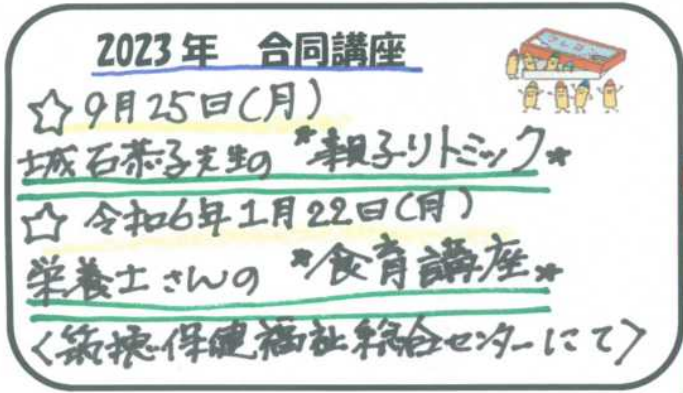 2023年 合同講座
☆9月25日(月)
城石恭子先生の *親子リトミック*
☆令和6年1月22日(月)
栄養士さんの *食育講座*
〈筑穂保健福祉総合センターにて〉